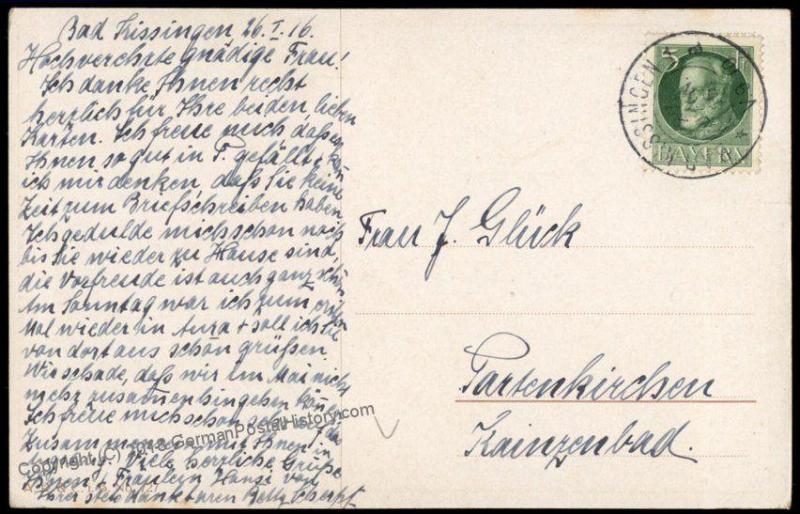 Bad Kissingen 26.I.16.
Hochverehrte gnädige Frau!
Ich danke Ihnen recht
herzlich für Ihre beiden lieben
Karten. Ich freue mich daß es
Ihnen so gut in P. gefällt +
ich mir denken, daß Sie keine
Zeit zum Briefschreiben haben
Ich gedulde mich schon noch
bis Sie wieder zu Hause sind,
die Vorfreude ist auch ganz schön
Am Sonntag war ich zum ersten
Mal wieder in Aura + soll ich Sie
von dort aus schön grüßen.
Wie schade, daß wir im Mai nicht
mehr zusammen hingehen
Ich freue mich schon
Zusammen mit Ihnen
Viele herzliche Grüße
Ihnen + Fräulein Hansi von
Ihrer stets dankbaren Betty
Frau J. Glück
Partenkirchen
Kainzenbad.
BAYERN
Copyright (C) GermanPostalHistory.com